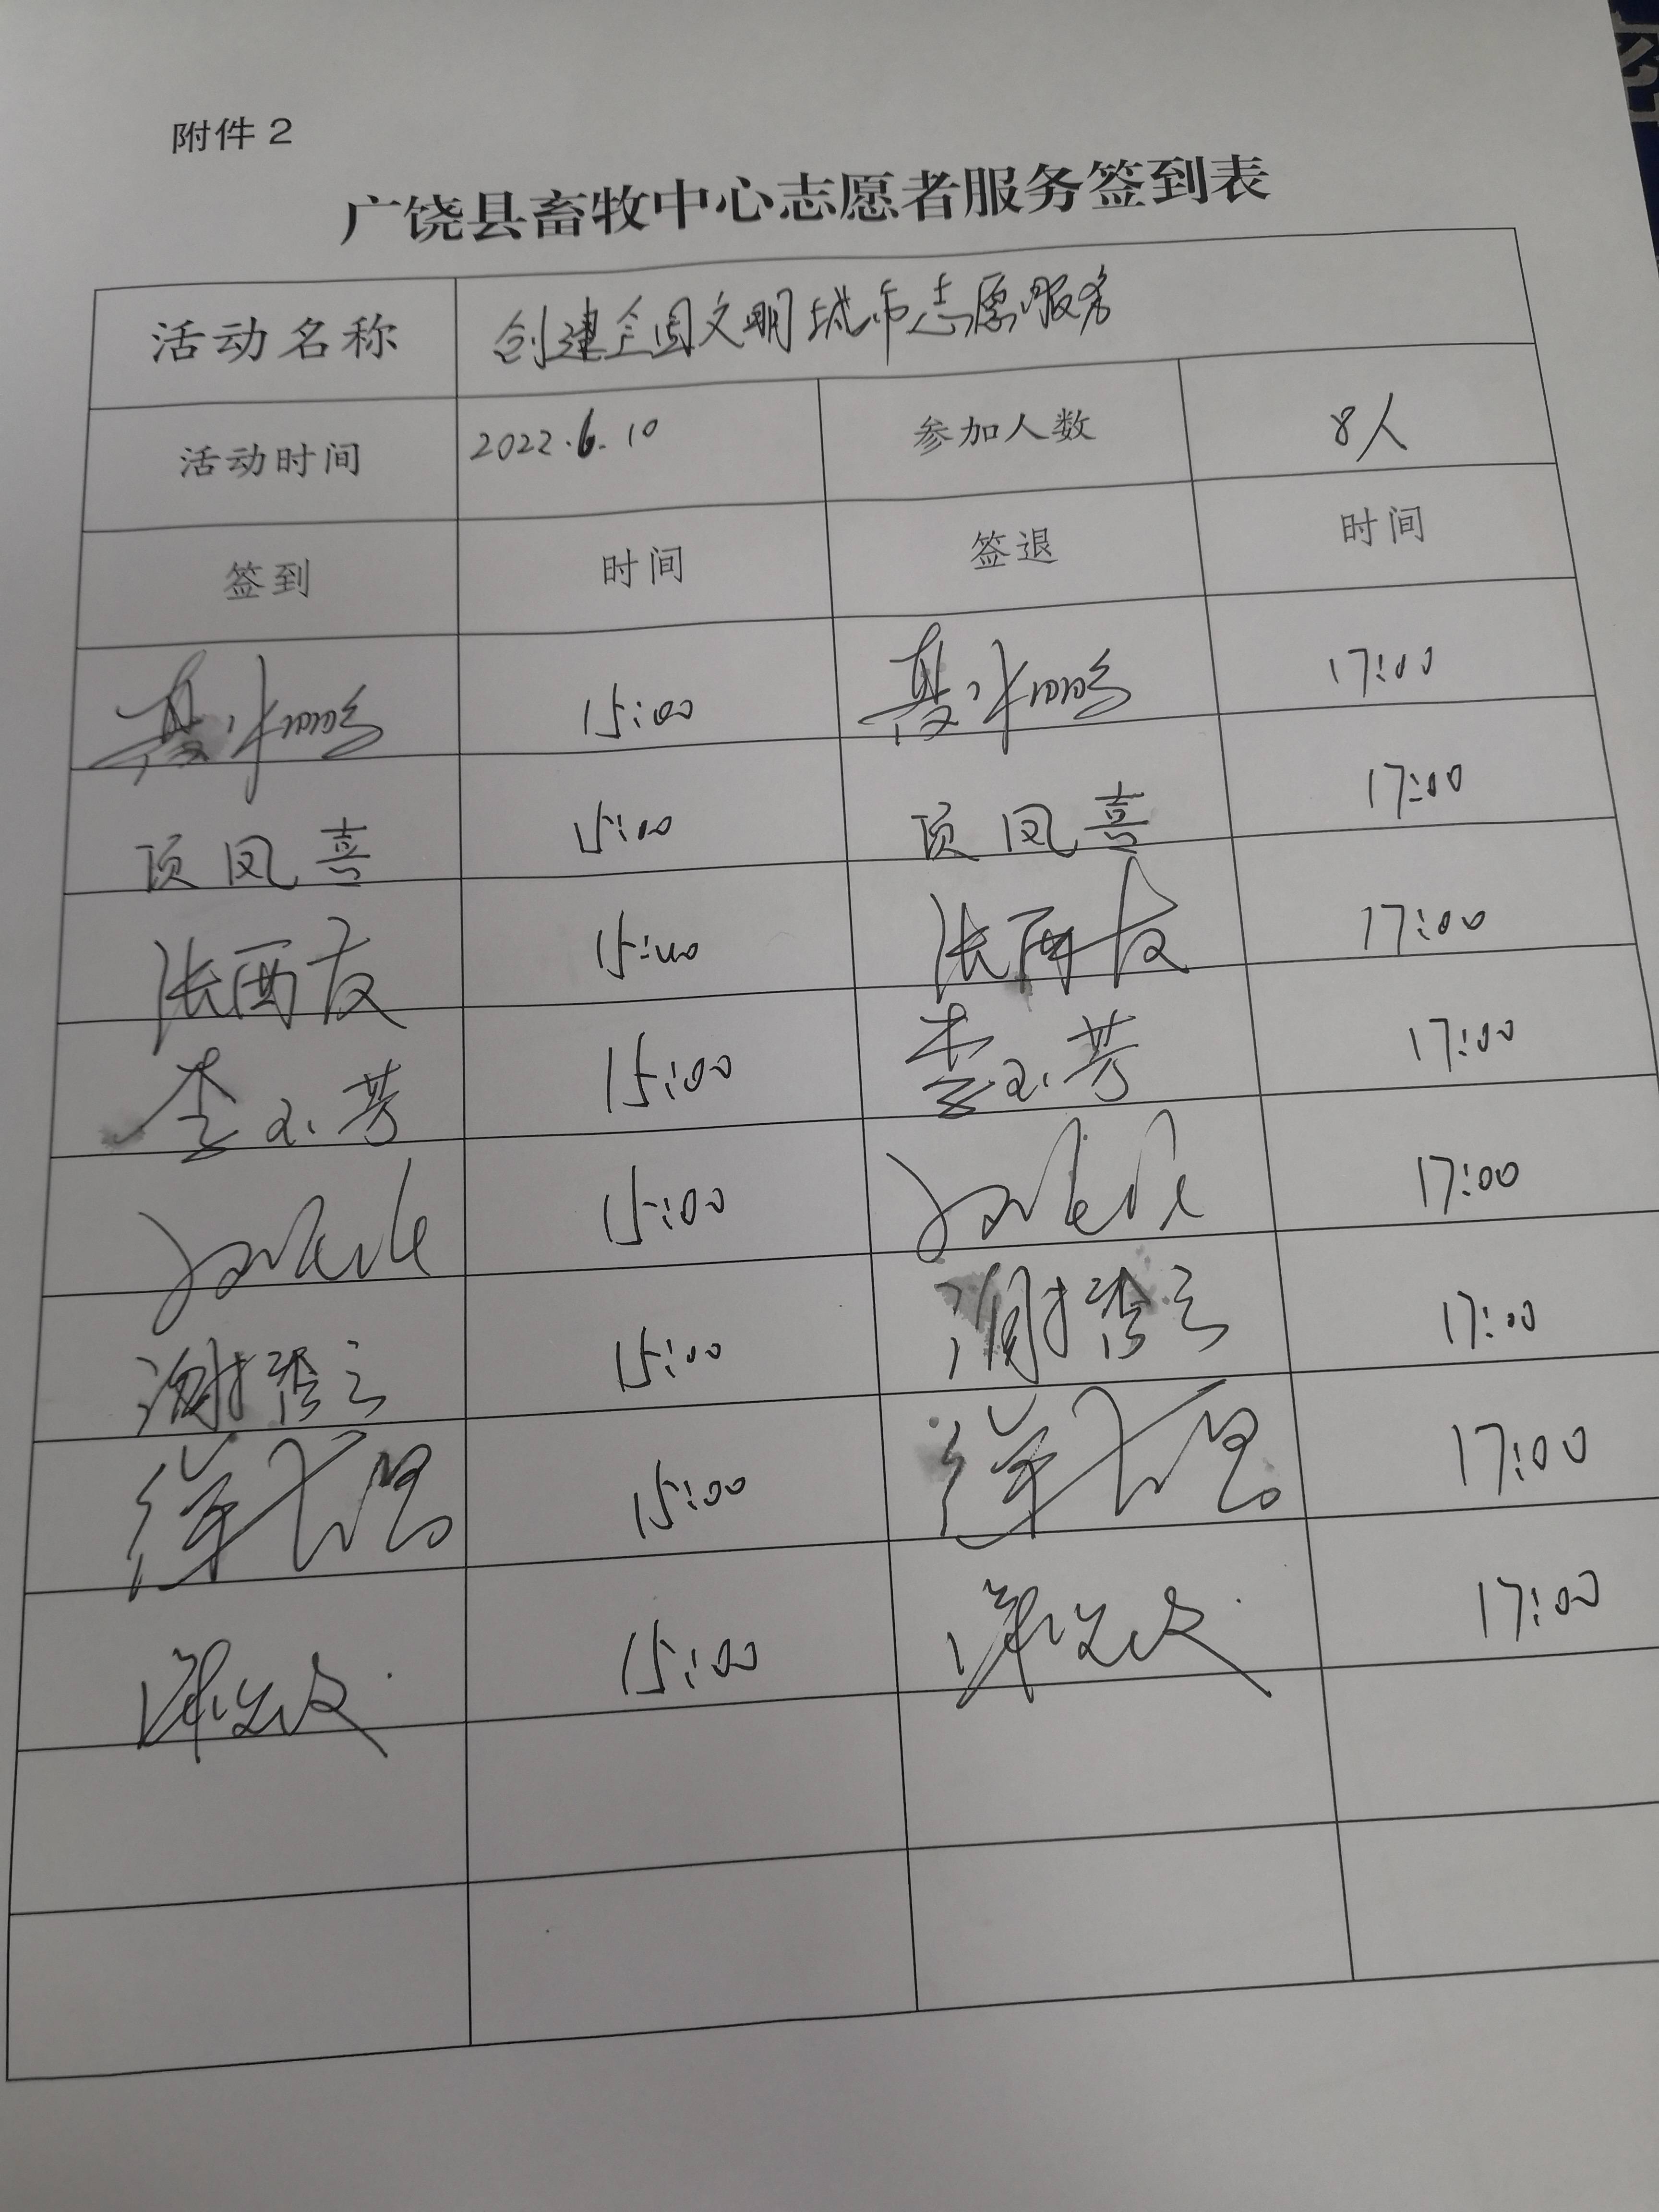 附件2
广饶县畜牧中心志愿者服务签到表
活动名称 创建全国文明城市志愿服务
活动时间 2022.6.10 参加人数 8人
签到 时间 签退 时间
15:00 17:00
项凤喜 15:00 项凤喜 17:00
张西友 15:00 张西友 17:00
李玉芳 15:00 李玉芳 17:00
15:00 17:00
谢秀云 15:00 谢秀云 17:00
15:00 17:00
15:00 17:00